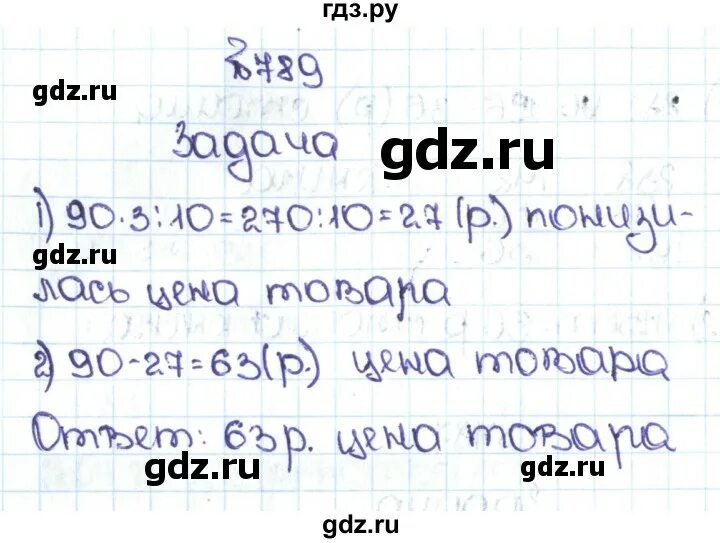 гдз.ру
№789
gdz.ru
Задача
gdz.ru
1) 90·3:10=270:10=27 (р.) понизи-
gdz.ru
лась цена товара
2) 90-27=63(р.) цена товара
Ответ: 63р. цена товара
gdz.ru
gdz.ru
gdz.ru